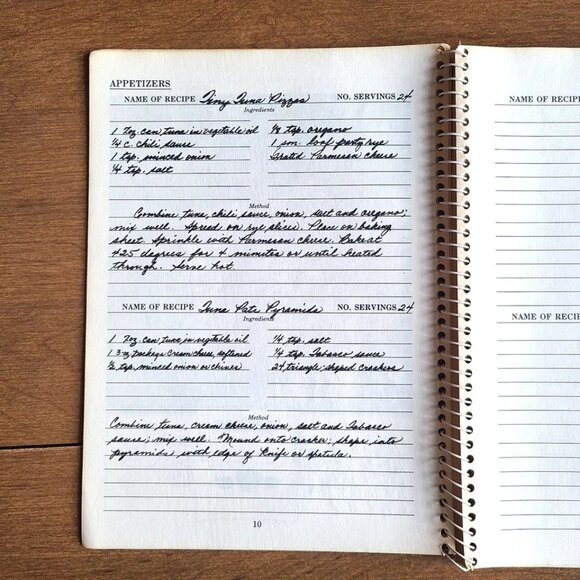 APPETIZERS
NAME OF RECIPE Tiny Tuna Pizzas NO. SERVINGS 24
Ingredients
1 7oz. can tuna in vegetable oil
¼ c. chili sauce
1 tsp. minced onion
¼ tsp. salt
⅛ tsp. oregano
1 sm. loaf party rye
Grated Parmesan cheese
Method
Combine tuna, chili sauce, onion, salt and oregano;
mix well. Spread on rye slices. Place on baking
sheet. Sprinkle with Parmesan cheese. Bake at
425 degrees for 4 minutes or until heated
through. Serve hot.
NAME OF RECIPE Tuna Pate Pyramids NO. SERVINGS 24
Ingredients
1 7oz. can tuna in vegetable oil
1 3-oz package cream cheese, softened
½ tsp. minced onion or chives
¼ tsp. salt
¼ tsp. Tabasco sauce
24 triangle-shaped crackers
Method
Combine tuna, cream cheese, onion, salt and Tabasco
sauce; mix well. Mound onto cracker; shape into
pyramids with edge of knife or spatula.
10
NAME OF RECIP
NAME OF RECIP